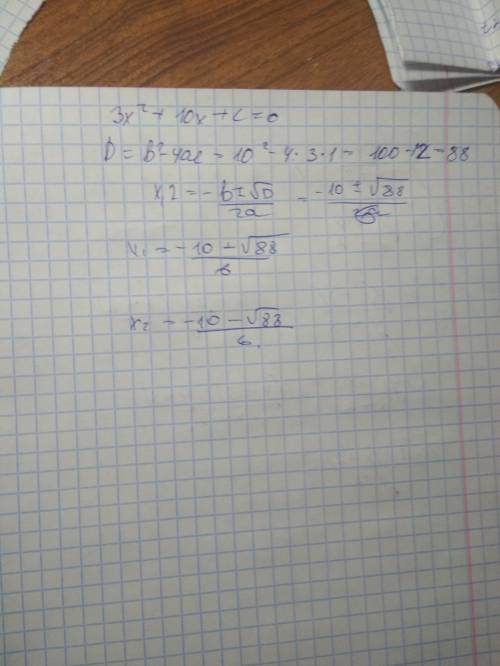 3x² + 10x + c = 0
D = b² - 4ac = 10² - 4 · 3 · 1 = 100 - 12 = 88
x,2 = -b ± √D / 2a = -10 ± √88 /
x₁ = -10 + √88 / 6
x₂ = -10 - √88 / 6.